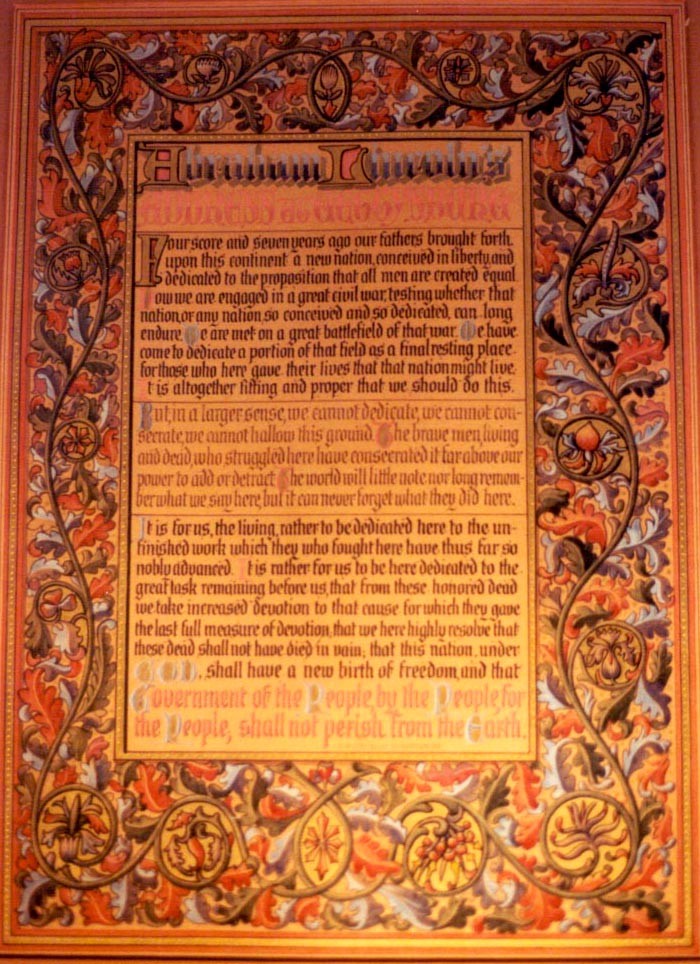 Abraham Lincoln's
Four score and seven years ago our fathers brought forth
upon this continent a new nation, conceived in liberty, and
dedicated to the proposition that all men are created equal
ow we are engaged in a great civil war, testing whether that
nation, or any nation, so conceived and so dedicated, can long
endure. We are met on a great battlefield of that war. We have
come to dedicate a portion of that field as a final resting place
for those who here gave their lives that that nation might live.
It is altogether fitting and proper that we should do this.
But, in a larger sense, we cannot dedicate, we cannot con-
secrate, we cannot hallow this ground. The brave men, living
and dead, who struggled here have consecrated it far above our
power to add or detract. The world will little note nor long remem-
ber what we say here, but it can never forget what they did here.
It is for us, the living, rather to be dedicated here to the un-
finished work which they who fought here have thus far so
nobly advanced. It is rather for us to be here dedicated to the
great task remaining before us, that from these honored dead
we take increased devotion to that cause for which they gave
the last full measure of devotion, that we here highly resolve that
these dead shall not have died in vain; that this nation, under
GOD, shall have a new birth of freedom, and that
Government of the People, by the People, for
the People, shall not perish from the Earth.